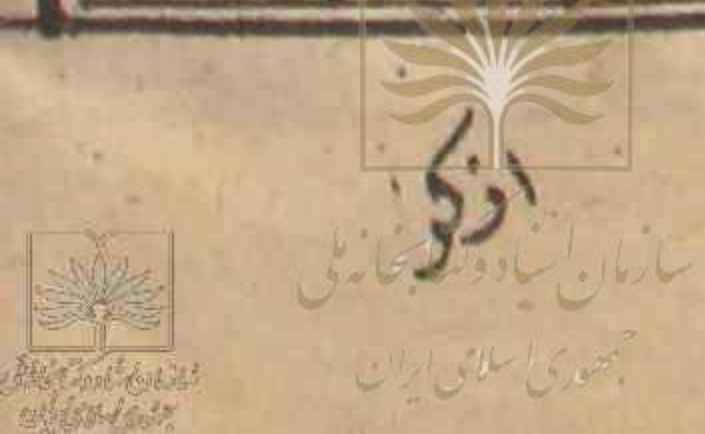 اذکر
سازمان اسناد و کتابخانه ملی
جمهوری اسلامی ایران